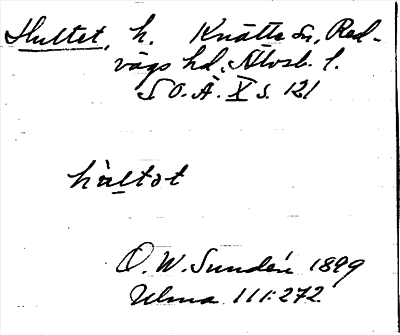 Hultet, h. Knätte sn, Red-
vägs hd, Älvsb. l.
S O. Ä. X s. 121
hùltət
O. W. Sundén 1899
Ulma 111:272